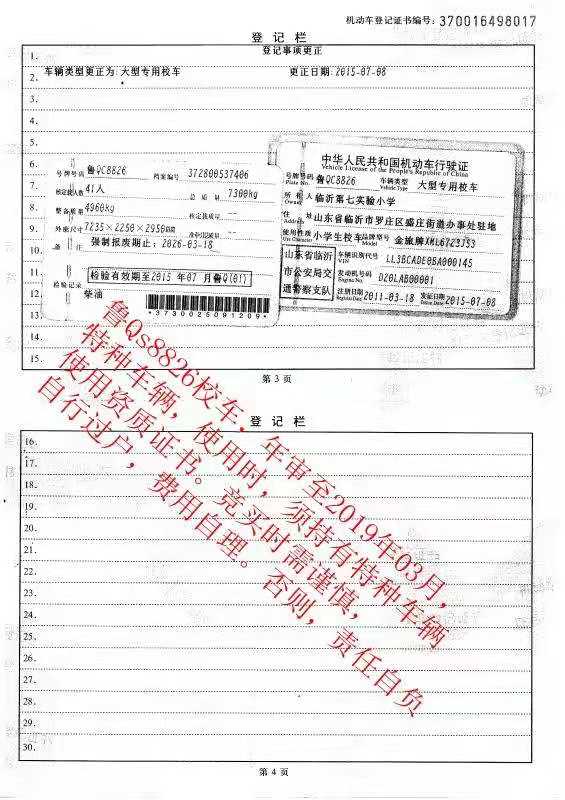 机动车登记证书编号：370016498017
登记栏
登记事项更正
1.
车辆类型更正为：大型专用校车 更正日期：2015-07-08
2.
3.
4.
5.
6.
7.
8.
9.
10.
11.
12.
13.
14.
15.
号牌号码 鲁QC8826 档案编号 372800537406
核定载人数 41人 7300kg
整备质量 4960kg 核定载质量 --
外廓尺寸 7235×2250×2950mm 准牵引总质量 --
备注 强制报废期止：2026-03-18
检验有效期至2015年07月鲁Q(01)
检验记录
柴油
*3730025091209*
中华人民共和国机动车行驶证
Vehicle License of the People's Republic of China
号牌号码 Plate No. 鲁QC8826 车辆类型 Vehicle Type 大型专用校车
所有人 Owner 临沂第七实验小学
住址 Address 山东省临沂市罗庄区盛庄街道办事处驻地
使用性质 Use Character 小学生校车 品牌型号 Model 金旅牌XML6723J53
山东省临沂市公安局交通警察支队
车辆识别代号 VIN LL3BCADE0BA000145
发动机号码 Engine No. D20LAB00001
注册日期 Register Date 2011-03-18 发证日期 Issue Date 2015-07-08
第3页
鲁Qs8826校车，年审至2019年03月，
特种车辆，使用时，须持有特种车辆
使用资质证书。竞买时需谨慎，
自行过户，费用自理。否则，责任自负
登记栏
16.
17.
18.
19.
20.
21.
22.
23.
24.
25.
26.
27.
28.
29.
30.
第4页